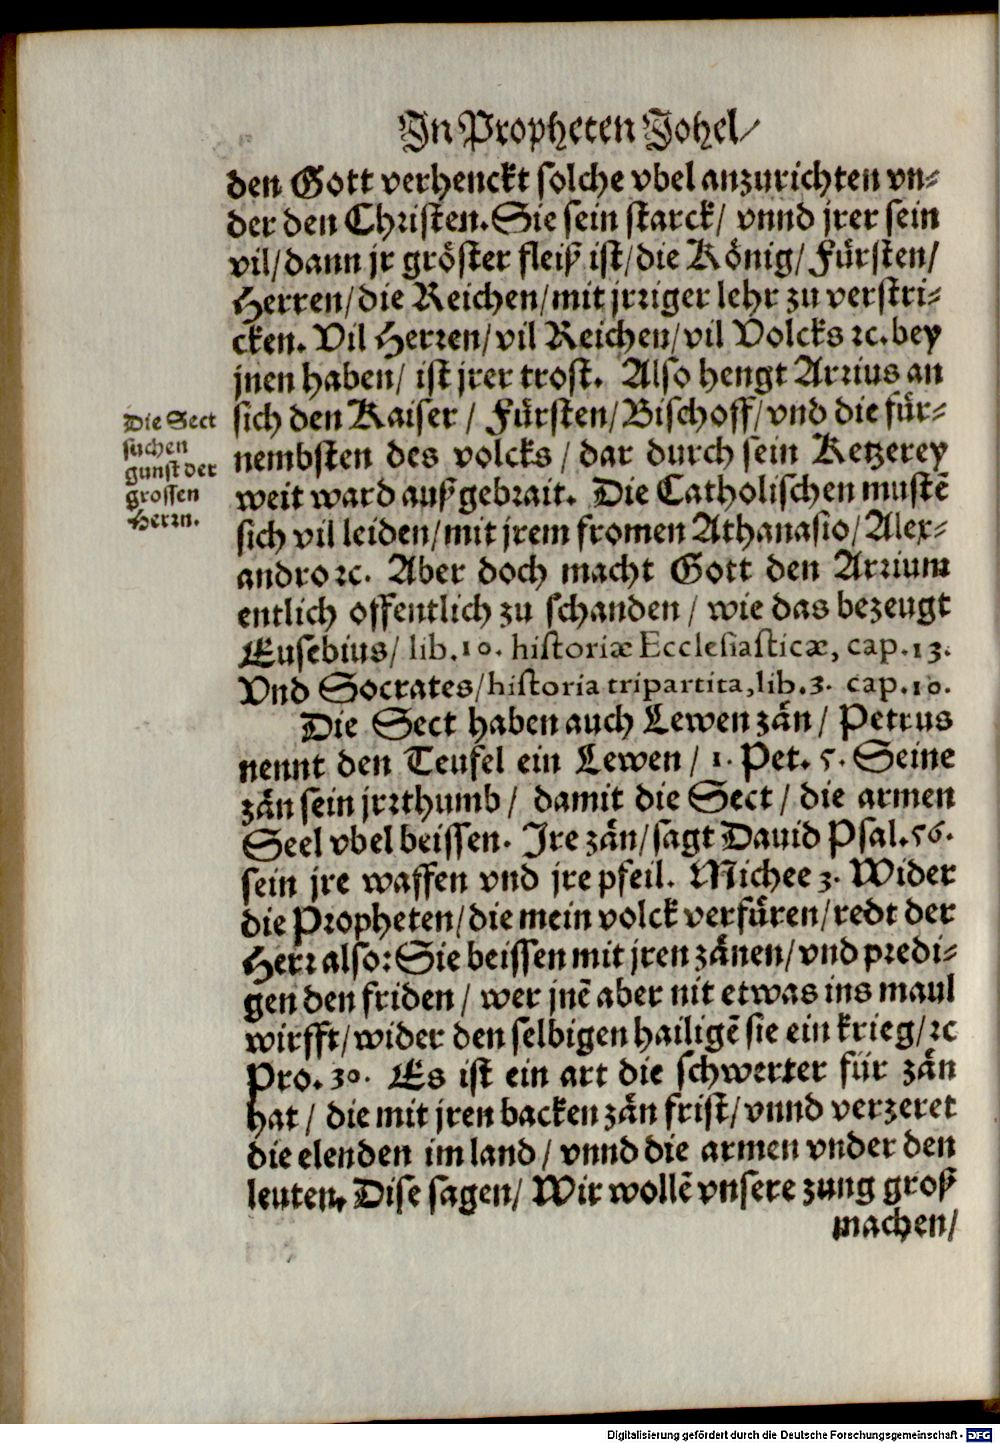 In Propheten Johel/
den Gott verhenckt solche vbel anzurichten vn⸗
der den Christen. Sie sein starck/ vnnd jrer sein
vil/ dann jr gröster fleiß ist/ die König/ Fürsten/
Herren/ die Reichen/ mit jrriger lehr zu verstri⸗
cken. Vil Herren/ vil Reichen/ vil Volcks ꝛc. bey
jnen haben/ ist jrer trost. Also hengt Arrius an
sich den Kaiser / Fürsten/ Bischoff/ vnd die für⸗
Die Sect
suchen
gunst der
grossen
Herrn.
nembsten des volcks / dar durch sein Ketzerey
weit ward außgebrait. Die Catholischen mustẽ
sich vil leiden/ mit jrem fromen Athanasio/ Alex⸗
andro ꝛc. Aber doch macht Gott den Arrium
entlich offentlich zu schanden / wie das bezeugt
Eusebius/ lib. 10. historiæ Ecclesiasticæ, cap. 13.
Vnd Socrates/ historia tripartita, lib. 3. cap. 10.
Die Sect haben auch Lewen zän / Petrus
nennt den Teufel ein Lewen / 1. Pet. 5. Seine
zän sein jrrthumb / damit die Sect / die armen
Seel vbel beissen. Ire zän/ sagt Dauid Psal. 56.
sein jre waffen vnd jre pfeil. Michee 3. Wider
die Propheten/ die mein volck verfüren/ redt der
Herr also: Sie beissen mit jren zänen/ vnd predi⸗
gen den friden / wer jnẽ aber nit etwas ins maul
wirfft/ wider den selbigen hailigẽ sie ein krieg/ ꝛc
Pro. 30. Es ist ein art die schwerter für zän
hat / die mit jren backen zän frist/ vnnd verzeret
die elenden im land / vnnd die armen vnder den
leuten. Dise sagen/ Wir wollẽ vnsere zung groß
machen/
Digitalisierung gefördert durch die Deutsche Forschungsgemeinschaft - DFG